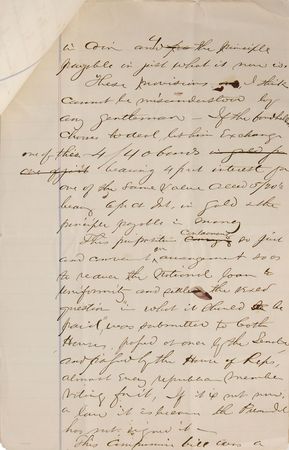 in Coin and the principle
payable in just what it now is.
These provisions I think
cannot be misunderstood by
any gentleman - If the bondholder
chooses to do it, let him Exchange
one of these 4/40 bonds
bearing 4 pct interest for
one of the same value called 5/20s
bearing 6 pct Int. in gold & the
principle payable in money
This proposition containing so just
and convenient an arrangement so as
to reduce the National loan to
uniformity and settle the vexed
question "in what it should be
paid", was submitted to both
Houses, passed at once by the Senate
and passed by the House of Reps,
almost every republican member
voting for it, If it is not now
a law it is because the President
has not signed it -
This Compromise bill was a